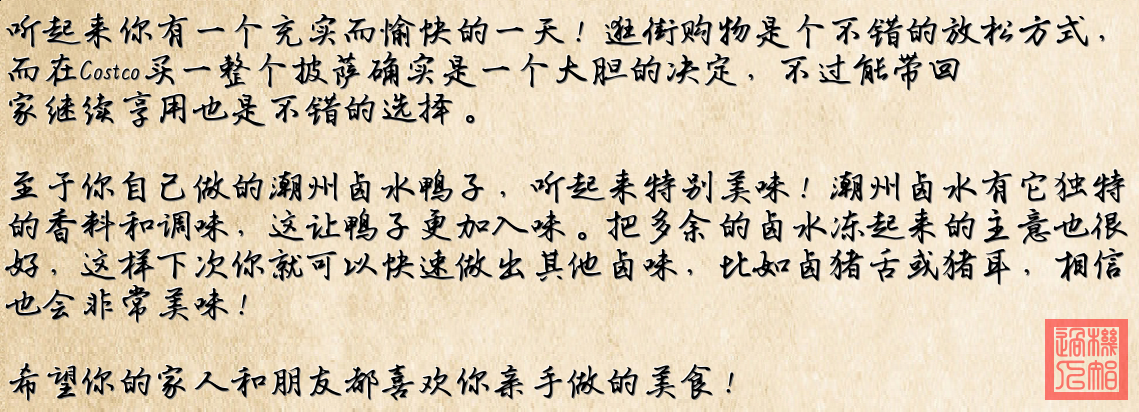 听起来你有一个充实而愉快的一天！逛街购物是个不错的放松方式，
而在Costco买一整个披萨确实是一个大胆的决定，不过能带回
家继续享用也是不错的选择。
至于你自己做的潮州卤水鸭子，听起来特别美味！潮州卤水有它独特
的香料和调味，这让鸭子更加入味。把多余的卤水冻起来的主意也很
好，这样下次你就可以快速做出其他卤味，比如卤猪舌或猪耳，相信
也会非常美味！
希望你的家人和朋友都喜欢你亲手做的美食！